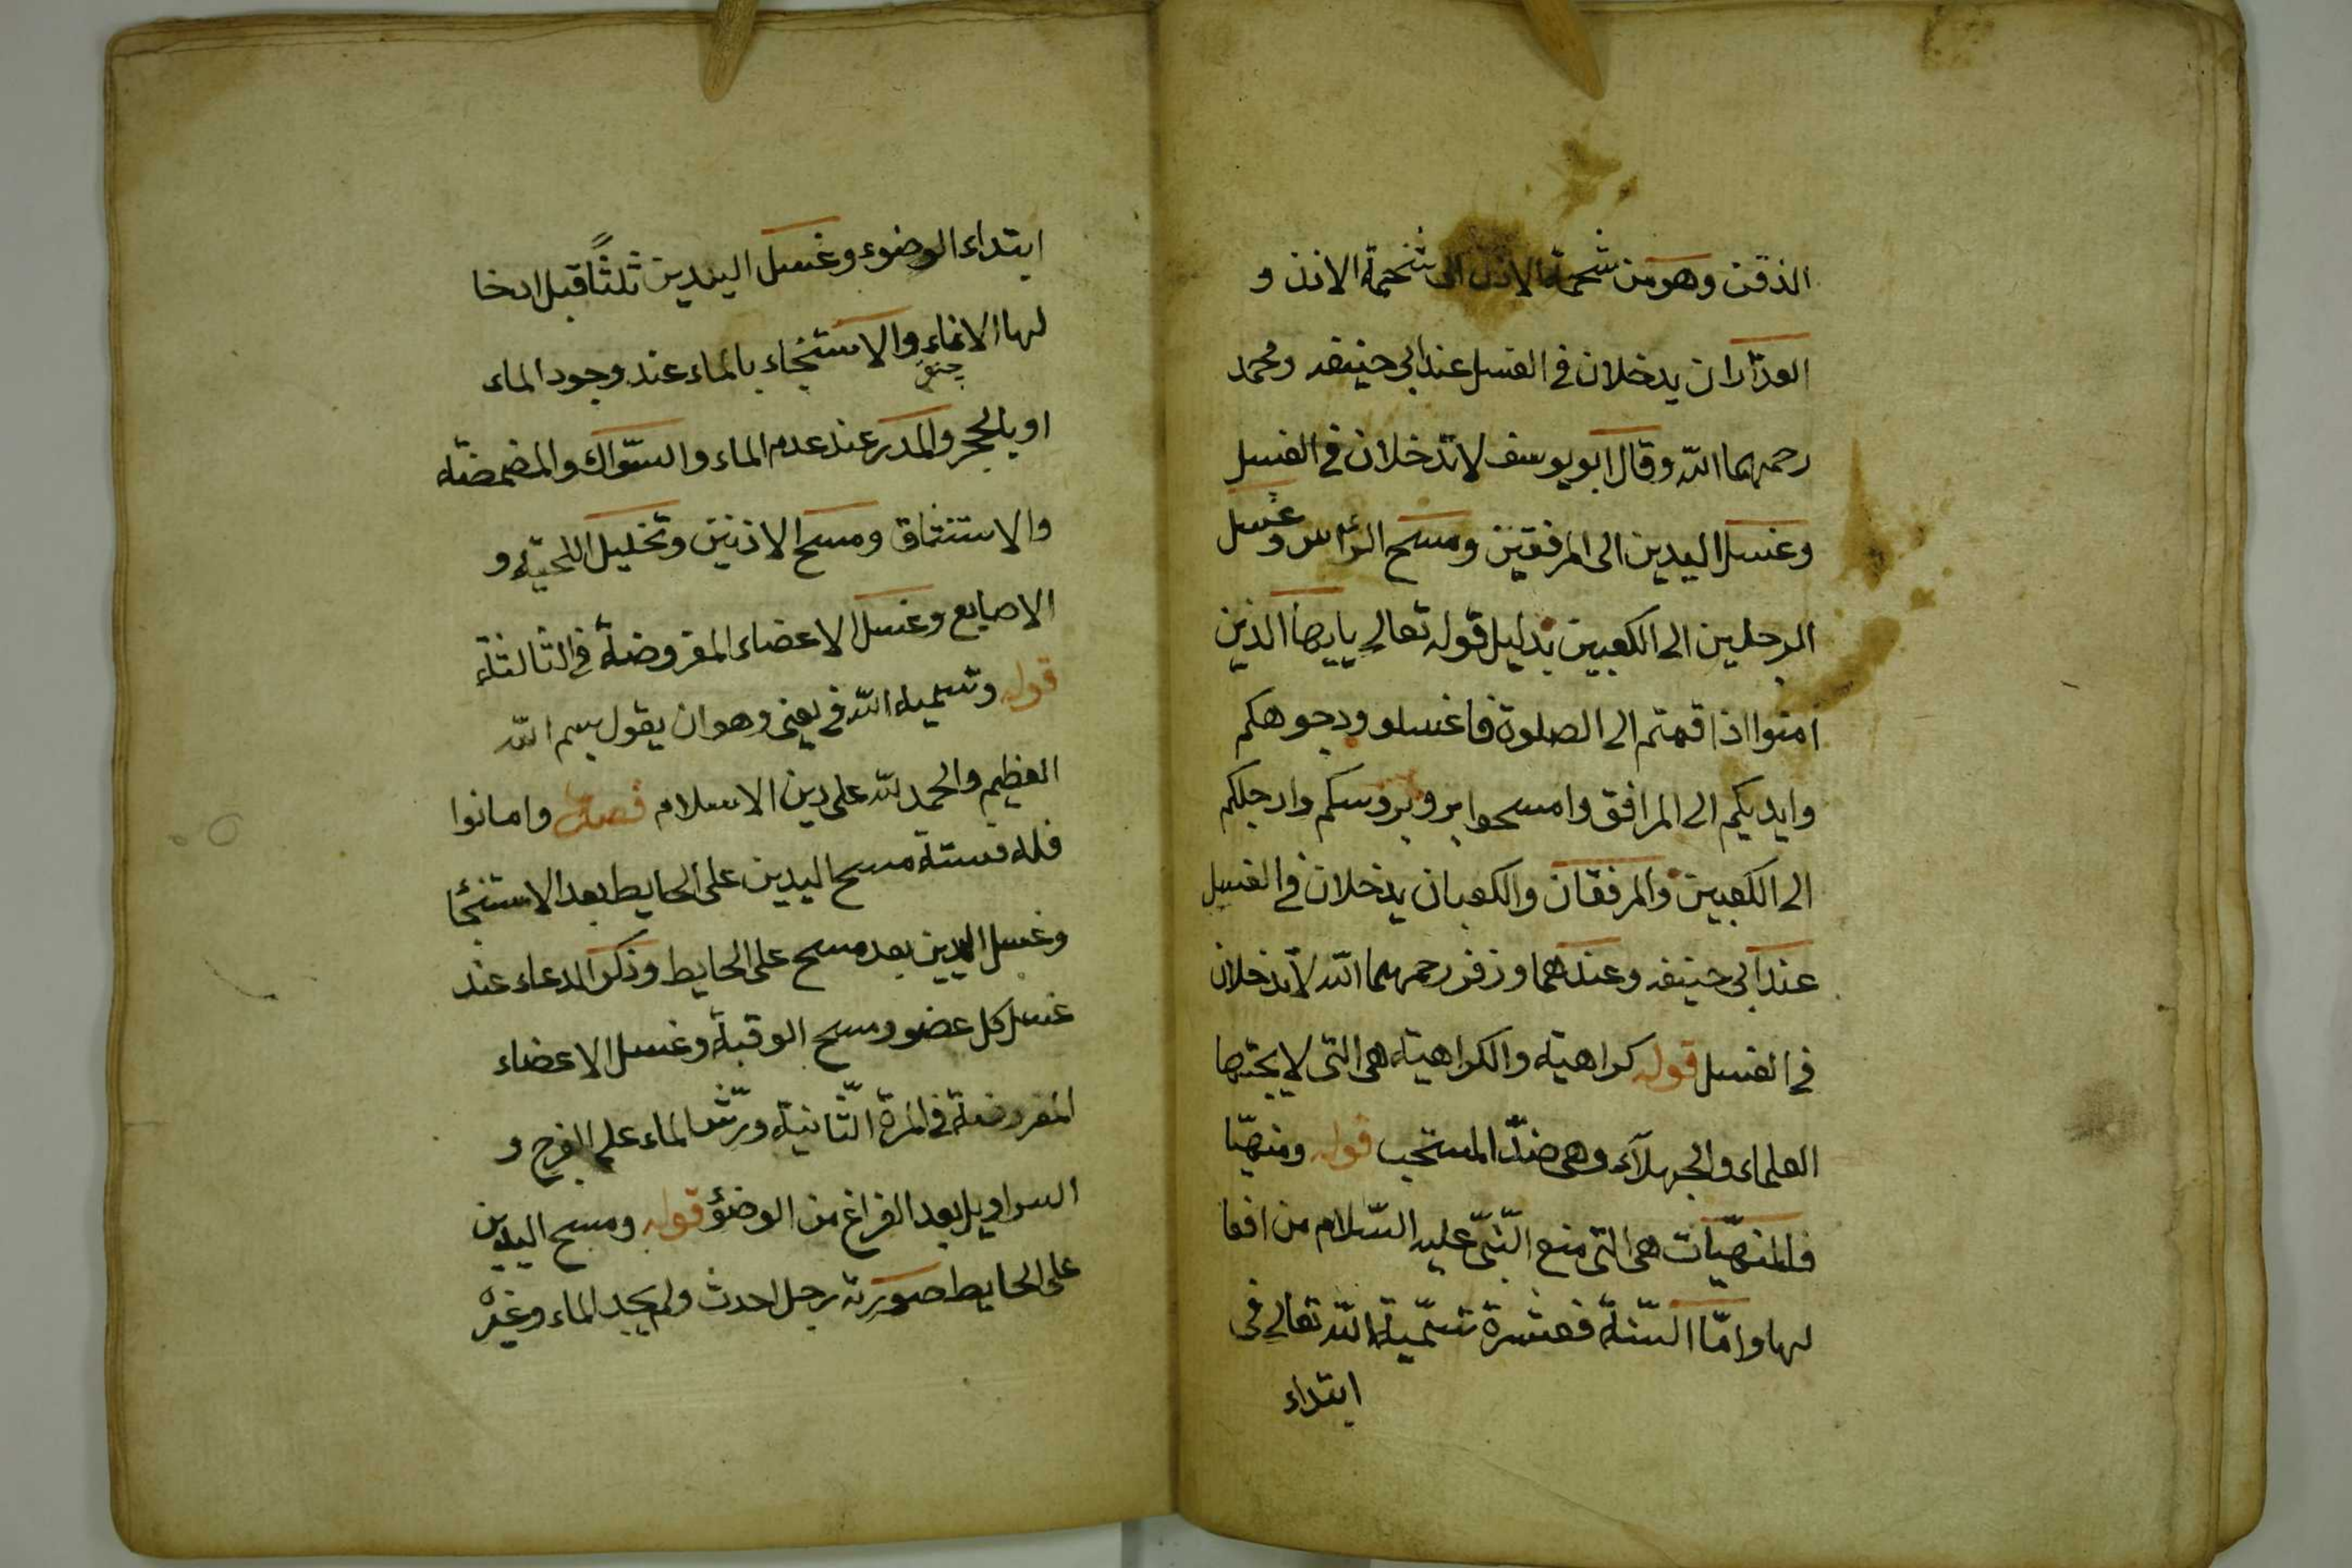 الذقن وهو من شحمة الاذن الى شحمة الاذن و
العذاران يدخلان فى الغسل عند ابى حنيفه ومحمد
رحمهما الله وقال ابو يوسف لا تدخلان فى الغسل
وغسل اليدين الى المرفقين ومسح الرأس وغسل
الرجلين الى الكعبين بدليل قوله تعالى يايها الذين
امنوا اذا قمتم الى الصلوة فاغسلو وجوهكم
وايديكم الى المرافق وامسحوا برو بروسكم وارجلكم
الى الكعبين والمرفقان والكعبان يدخلان فى الغسل
عند ابى حنيفه وعندهما وزفر رحمهما الله لا تدخلان
فى الغسل قوله كراهية والكراهية هى التى لا يحبها
العلماء والجهلآء وهى ضدّ المستحب قوله ومنهيّا
فالمنهيّات هى التى منع النّبىّ عليه السّلام من افعا
لها وامّا السّنّة فعشرة تسمّية الله تعالى فى
ابتداء
ابتداء الوضوء وغسل اليدين ثلثًا قبل ادخا
لها الاناء والاستنجاء بالماء عند وجود الماء
او بالحجر والمدر عند عدم الماء والسّواك والمضمضة
والاستنشاق ومسح الاذنين وتخليل اللحية و
الاصابع وغسل الاعضاء المفروضة فى الثالثة
قوله وتسمية الله فى يعنى وهو ان يقول بسم الله
العظيم والحمد لله على دين الاسلام فصل وامانوا
فله فستة مسح اليدين على الحايط بعد الاستنجا
وغسل اليدين بعد مسح على الحايط وذكر الدعاء عند
غسل كل عضو ومسح الوقبة وغسل الاعضاء
المفروضة فى المرة الثّانية ورشّ الماء على الفرج و
السراويل بعد الفراغ من الوضؤ قوله ومسح اليدين
على الحايط صورته رجل احدث ولم يجد الماء وغيره